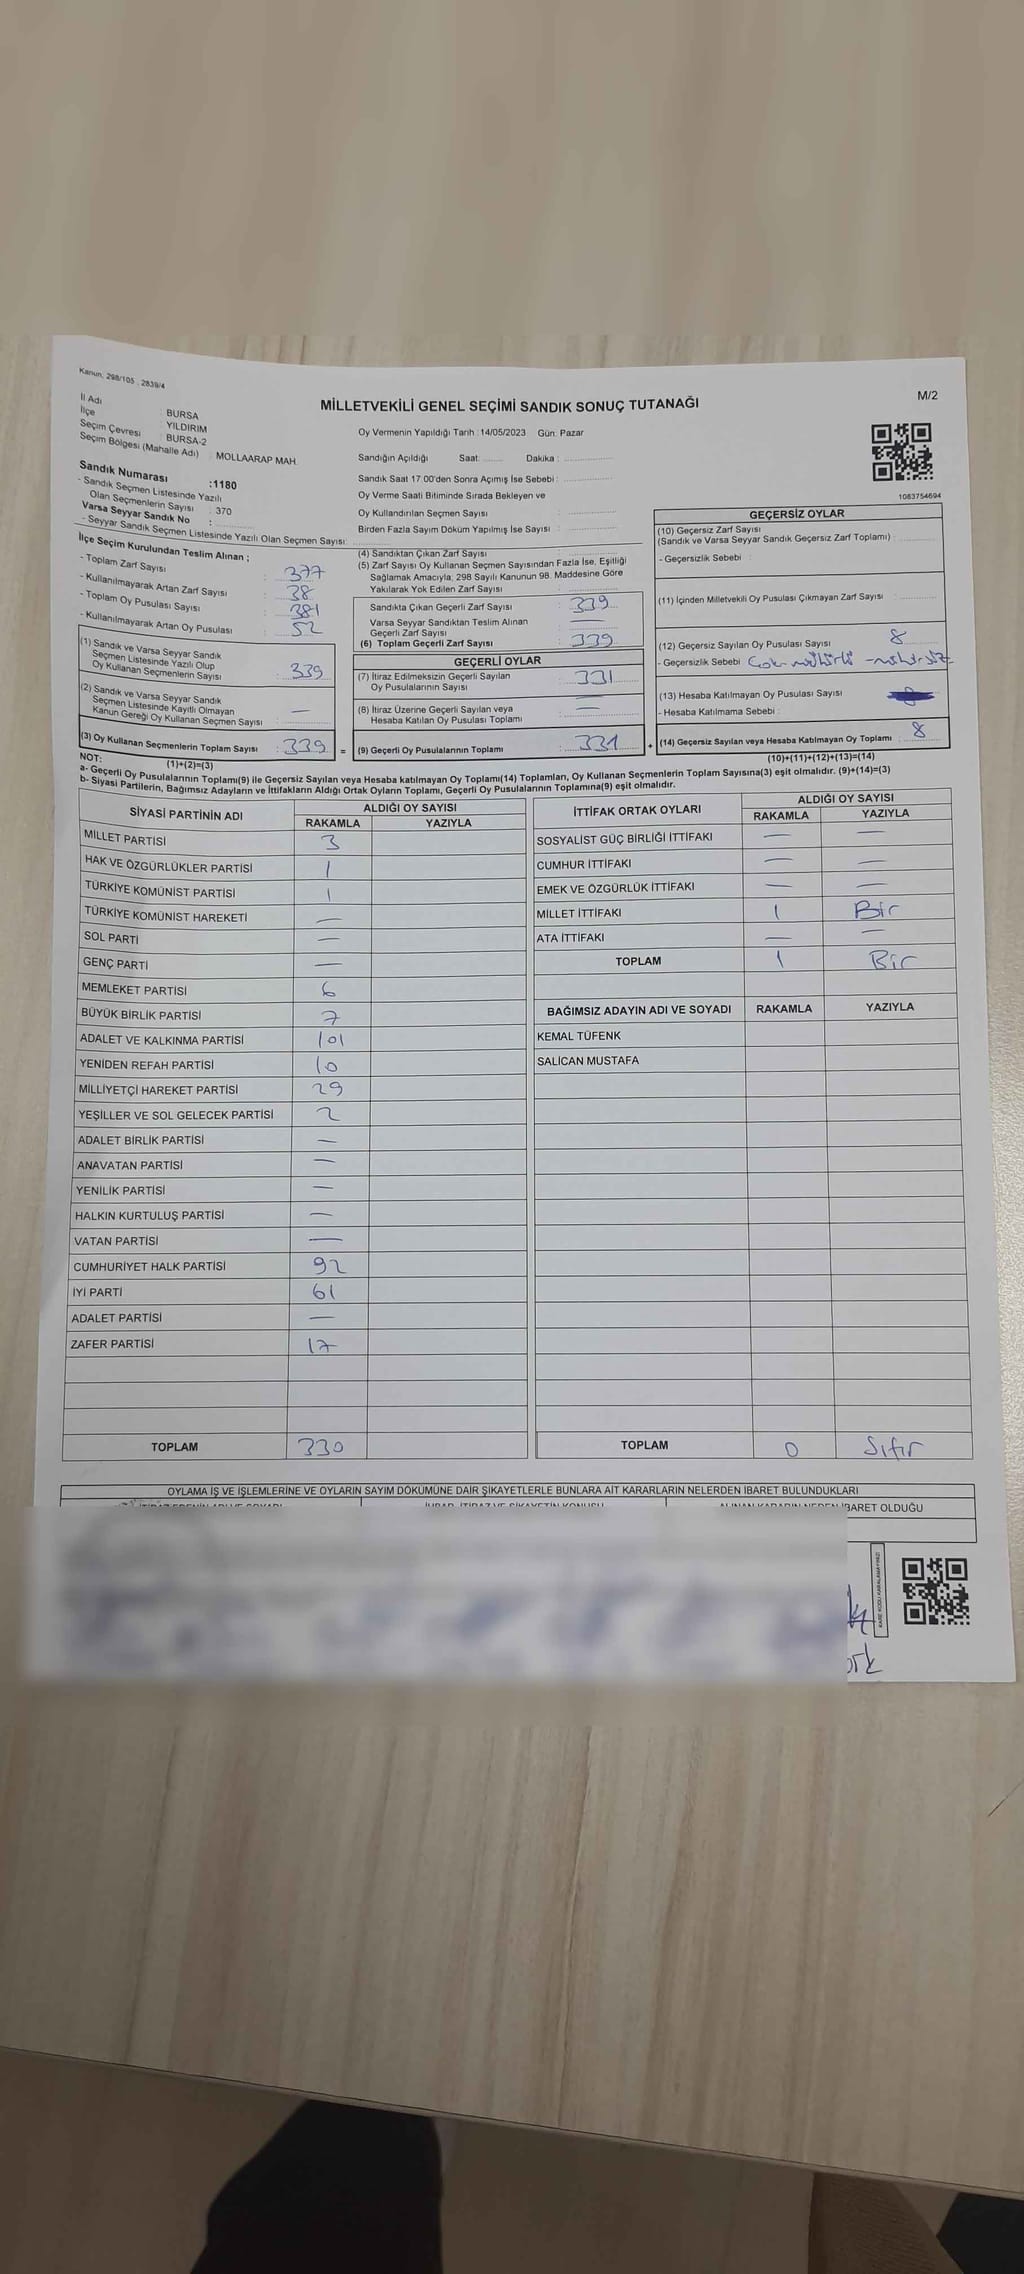 Kanun, 298/105 , 2839/4
M/2
MİLLETVEKİLİ GENEL SEÇİMİ SANDIK SONUÇ TUTANAĞI
İl Adı : BURSA
İlçe : YILDIRIM
Seçim Çevresi : BURSA-2
Seçim Bölgesi (Mahalle Adı) : MOLLAARAP MAH.
Sandık Numarası :1180
- Sandık Seçmen Listesinde Yazılı
Olan Seçmenlerin Sayısı : 370
Varsa Seyyar Sandık No :
- Seyyar Sandık Seçmen Listesinde Yazılı Olan Seçmen Sayısı:
Oy Vermenin Yapıldığı Tarih :14/05/2023 Gün: Pazar
Sandığın Açıldığı Saat: Dakika :
Sandık Saat 17.00'den Sonra Açımış İse Sebebi :
Oy Verme Saati Bitiminde Sırada Bekleyen ve
Oy Kullandırılan Seçmen Sayısı :
Birden Fazla Sayım Döküm Yapılmış İse Sayısı :
1083754694
İlçe Seçim Kurulundan Teslim Alınan ;
- Toplam Zarf Sayısı : 377
- Kullanılmayarak Artan Zarf Sayısı : 38
- Toplam Oy Pusulası Sayısı : 381
- Kullanılmayarak Artan Oy Pusulası : 52
(1) Sandık ve Varsa Seyyar Sandık
Seçmen Listesinde Yazılı Olup
Oy Kullanan Seçmenlerin Sayısı : 339
(2) Sandık ve Varsa Seyyar Sandık
Seçmen Listesinde Kayıtlı Olmayan
Kanun Gereği Oy Kullanan Seçmen Sayısı : —
(3) Oy Kullanan Seçmenlerin Toplam Sayısı : 339 =
(1)+(2)=(3)
(4) Sandıktan Çıkan Zarf Sayısı :
(5) Zarf Sayısı Oy Kullanan Seçmen Sayısından Fazla İse, Eşitliği
Sağlamak Amacıyla; 298 Sayılı Kanunun 98. Maddesine Göre
Yakılarak Yok Edilen Zarf Sayısı :
Sandıkta Çıkan Geçerli Zarf Sayısı : 339
Varsa Seyyar Sandıktan Teslim Alınan
Geçerli Zarf Sayısı : —
(6) Toplam Geçerli Zarf Sayısı : 339
GEÇERLİ OYLAR
(7) İtiraz Edilmeksizin Geçerli Sayılan
Oy Pusulalarının Sayısı : 331
(8) İtiraz Üzerine Geçerli Sayılan veya
Hesaba Katılan Oy Pusulası Toplamı : —
(9) Geçerli Oy Pusulalarının Toplamı : 331 +
GEÇERSİZ OYLAR
(10) Geçersiz Zarf Sayısı
(Sandık ve Varsa Seyyar Sandık Geçersiz Zarf Toplamı) :
- Geçersizlik Sebebi :
(11) İçinden Milletvekili Oy Pusulası Çıkmayan Zarf Sayısı :
(12) Geçersiz Sayılan Oy Pusulası Sayısı : 8
- Geçersizlik Sebebi : Çok mühürlü - mühürsüz
(13) Hesaba Katılmayan Oy Pusulası Sayısı :
- Hesaba Katılmama Sebebi :
(14) Geçersiz Sayılan veya Hesaba Katılmayan Oy Toplamı : 8
(10)+(11)+(12)+(13)=(14)
NOT:
a- Geçerli Oy Pusulalarının Toplamı(9) ile Geçersiz Sayılan veya Hesaba katılmayan Oy Toplamı(14) Toplamları, Oy Kullanan Seçmenlerin Toplam Sayısına(3) eşit olmalıdır. (9)+(14)=(3)
b- Siyasi Partilerin, Bağımsız Adayların ve İttifakların Aldığı Ortak Oyların Toplamı, Geçerli Oy Pusulalarının Toplamına(9) eşit olmalıdır.
SİYASİ PARTİNİN ADI ALDIĞI OY SAYISI
RAKAMLA YAZIYLA
MİLLET PARTİSİ 3
HAK VE ÖZGÜRLÜKLER PARTİSİ 1
TÜRKİYE KOMÜNİST PARTİSİ 1
TÜRKİYE KOMÜNİST HAREKETİ —
SOL PARTİ —
GENÇ PARTİ —
MEMLEKET PARTİSİ 6
BÜYÜK BİRLİK PARTİSİ 7
ADALET VE KALKINMA PARTİSİ 101
YENİDEN REFAH PARTİSİ 10
MİLLİYETÇİ HAREKET PARTİSİ 29
YEŞİLLER VE SOL GELECEK PARTİSİ 2
ADALET BİRLİK PARTİSİ —
ANAVATAN PARTİSİ —
YENİLİK PARTİSİ —
HALKIN KURTULUŞ PARTİSİ —
VATAN PARTİSİ —
CUMHURİYET HALK PARTİSİ 92
İYİ PARTİ 61
ADALET PARTİSİ —
ZAFER PARTİSİ 17
TOPLAM 330
İTTİFAK ORTAK OYLARI ALDIĞI OY SAYISI
RAKAMLA YAZIYLA
SOSYALİST GÜÇ BİRLİĞİ İTTİFAKI — —
CUMHUR İTTİFAKI — —
EMEK VE ÖZGÜRLÜK İTTİFAKI — —
MİLLET İTTİFAKI 1 Bir
ATA İTTİFAKI — —
TOPLAM 1 Bir
BAĞIMSIZ ADAYIN ADI VE SOYADI RAKAMLA YAZIYLA
KEMAL TÜFENK
SALİCAN MUSTAFA
TOPLAM 0 Sıfır
OYLAMA İŞ VE İŞLEMLERİNE VE OYLARIN SAYIM DÖKÜMÜNE DAİR ŞİKAYETLERLE BUNLARA AİT KARARLARIN NELERDEN İBARET BULUNDUKLARI
İTİRAZ EDENİN ADI VE SOYADI İHBAR, İTİRAZ VE ŞİKAYETİN KONUSU ALINAN KARARIN NEDEN İBARET OLDUĞU
KARE KODU KARALAMAYINIZ!